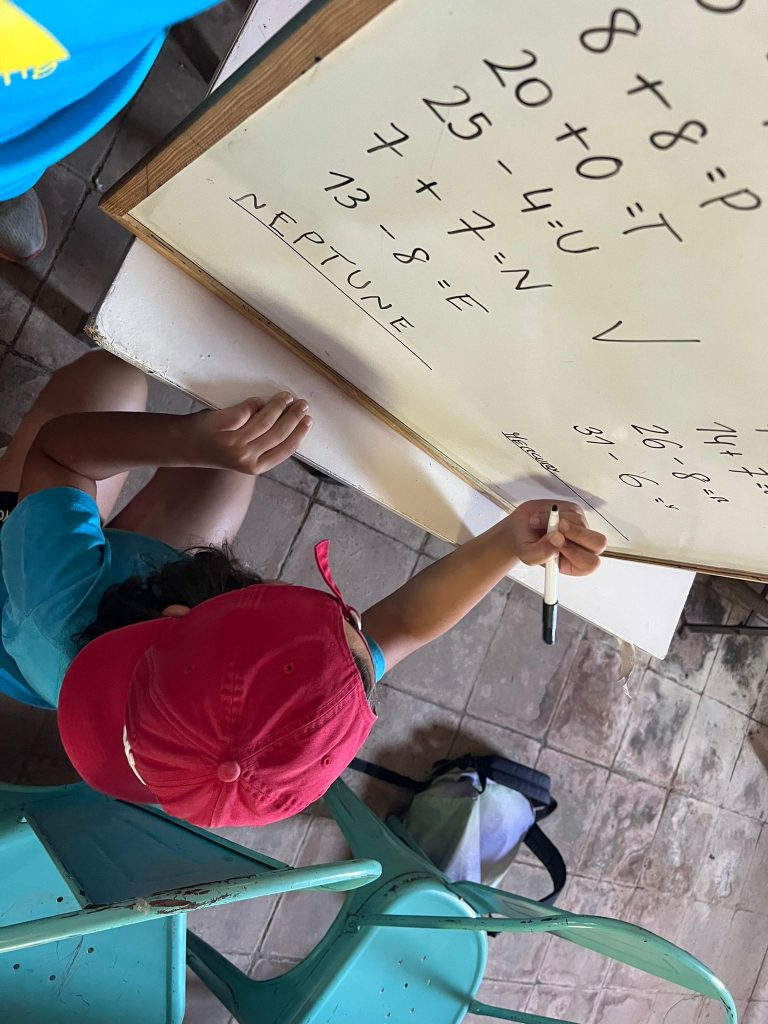 8 + 8 = P
20 + 0 = T
25 - 4 = U
7 + 7 = N
13 - 8 = E
NEPTUNE
14 + 7 =
26 - 8 =
31 - 6 =
MERCURY